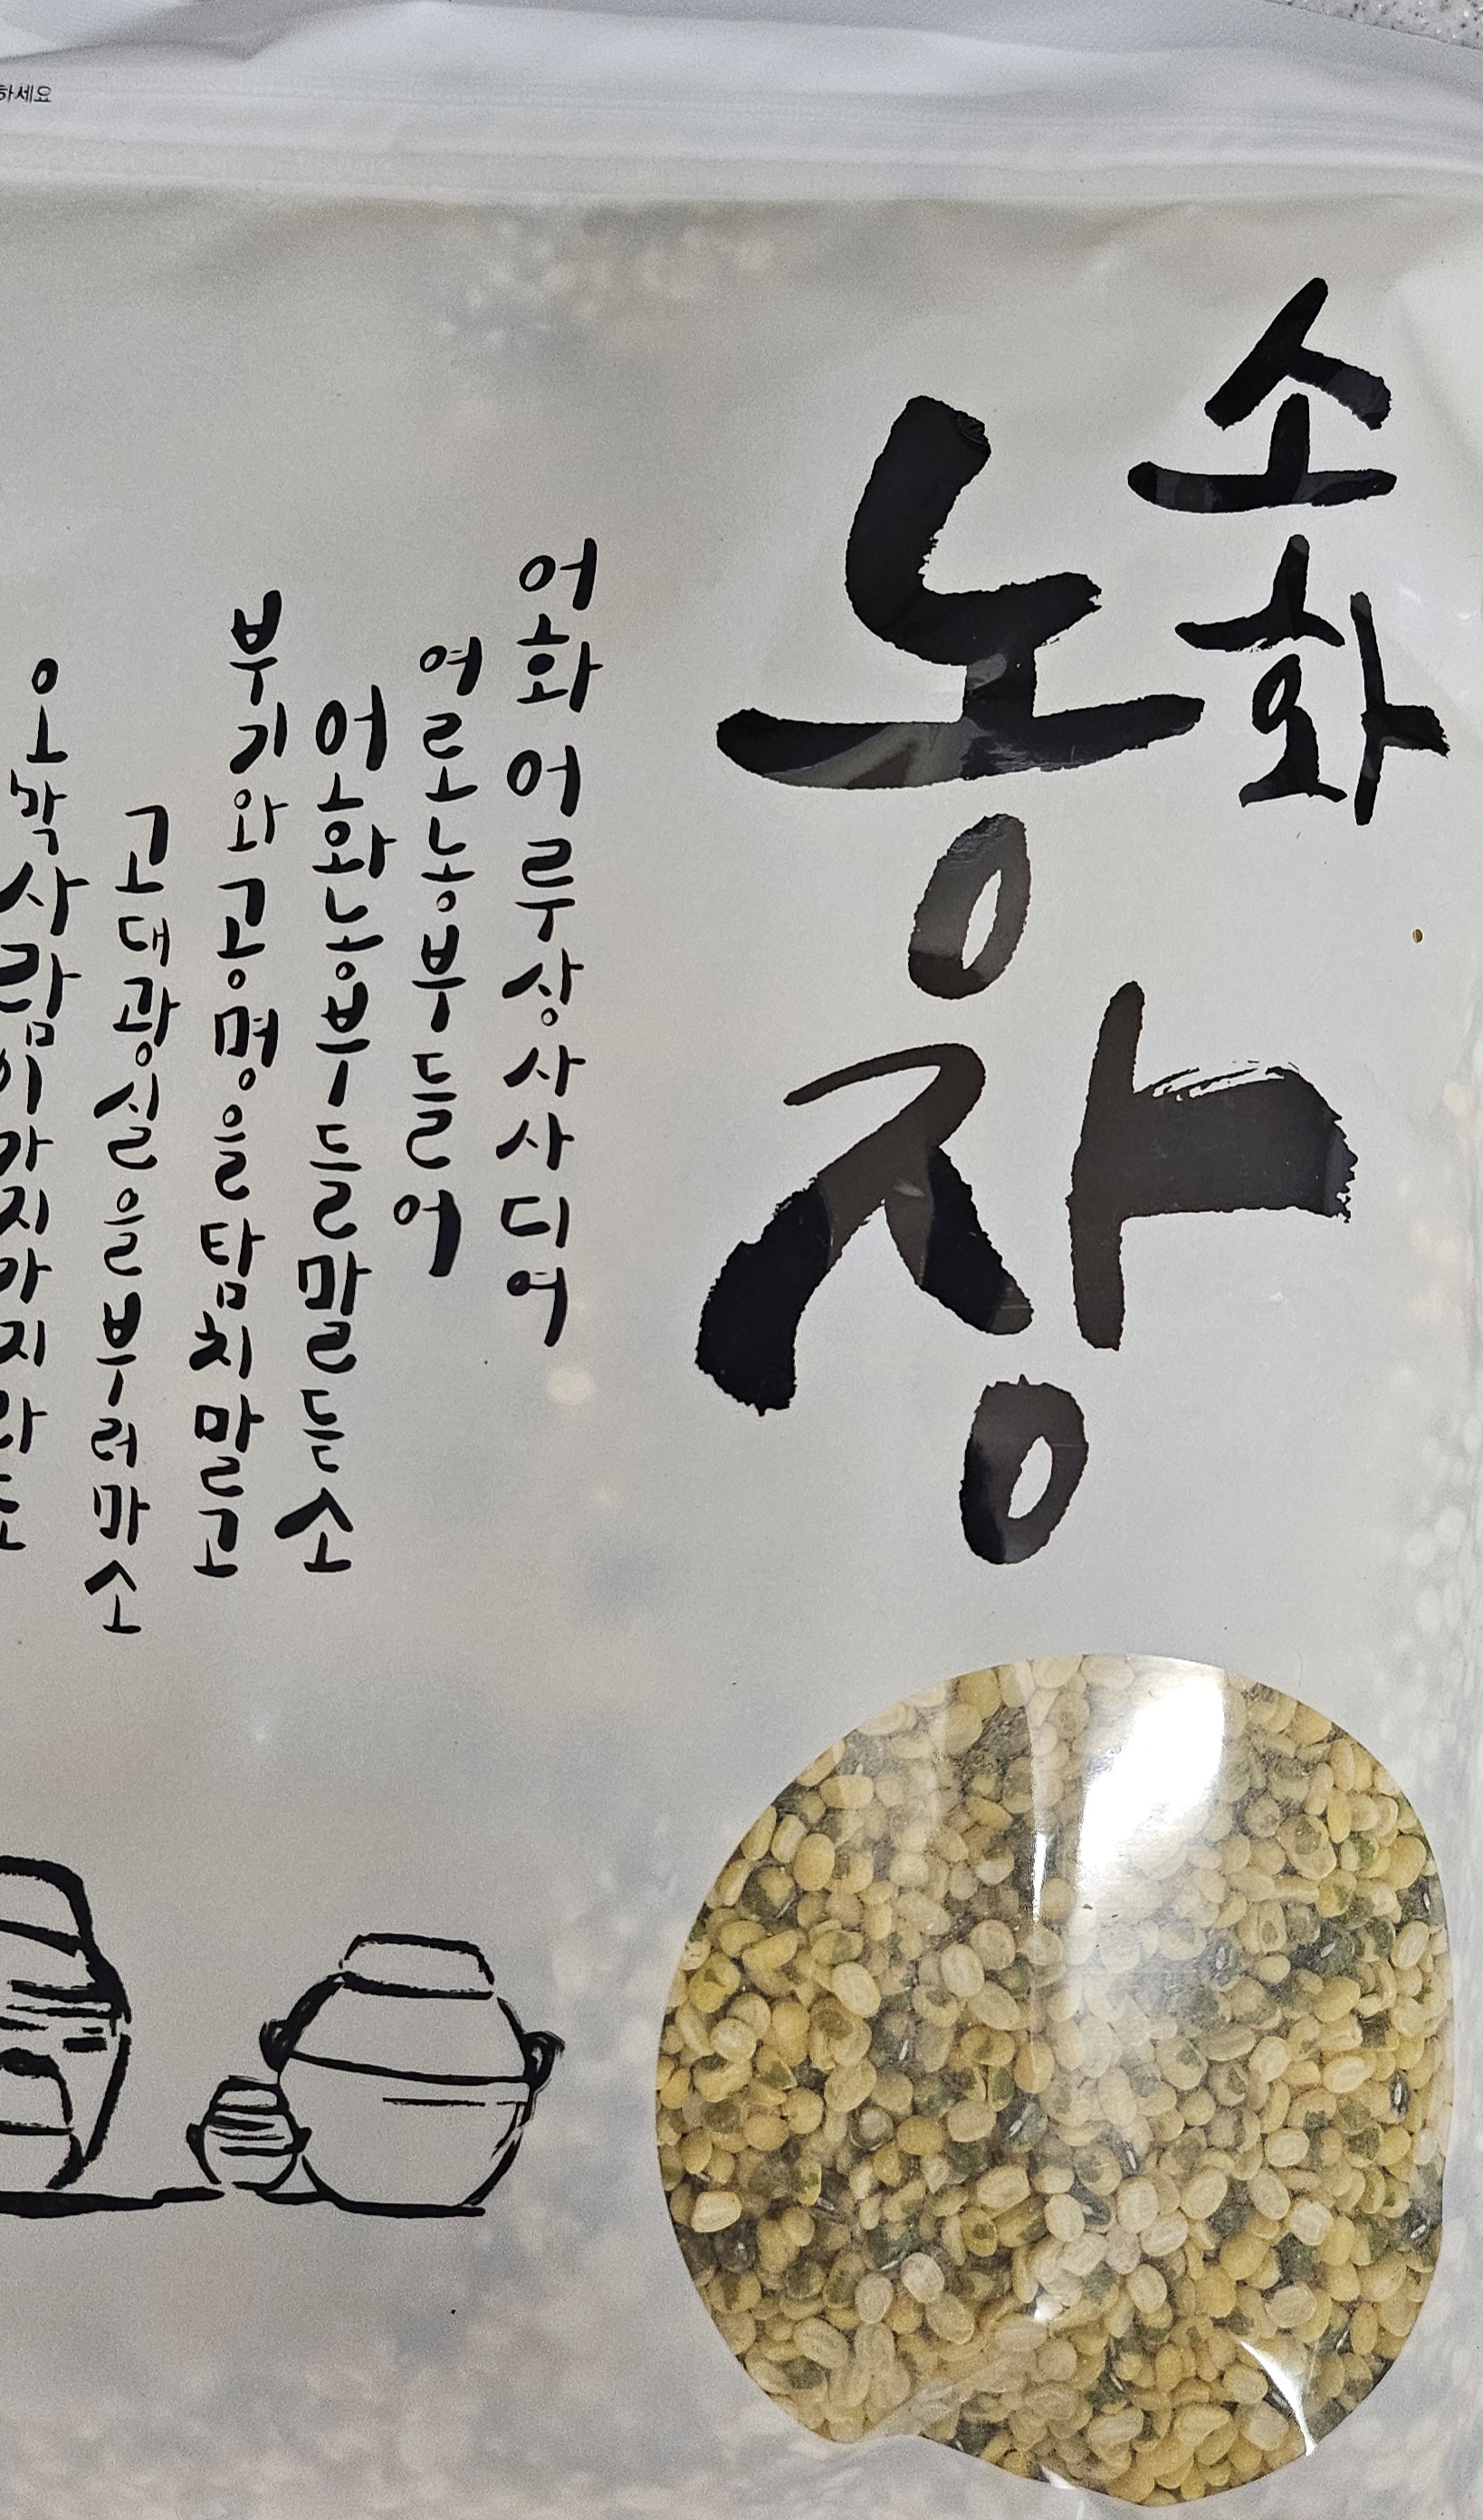 하세요
소화
농장
어화 어루상사디여
여르농부들어
어화농부들말듣소
부기와공명을탐치말고
고대광실을부러마소
오작사람이가지가지라도